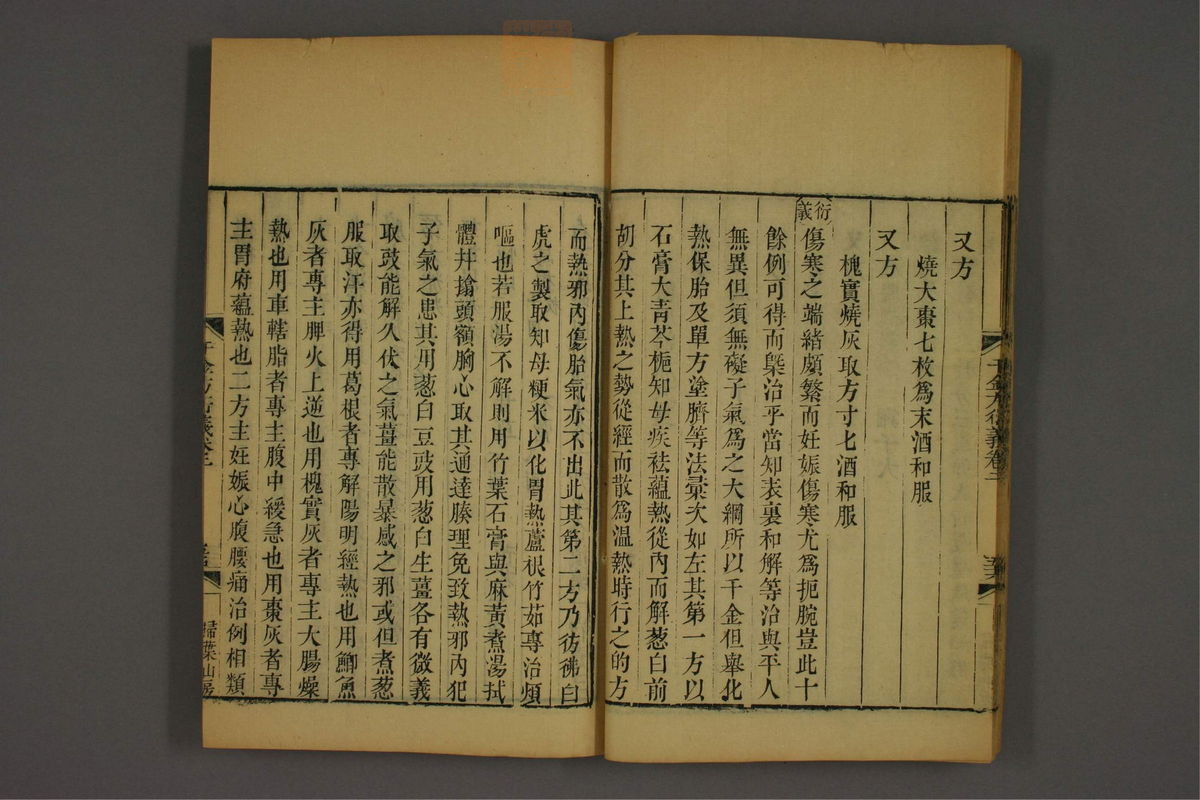 又方
燒大棗七枚爲末酒和服
又方
槐實燒灰取方寸匕酒和服
衍義
傷寒之端緒頗繁而妊娠傷寒尤爲扼腕豈此十
餘例可得而槩治乎當知表裏和解等治與平人
無異但須無礙子氣爲之大綱所以千金但舉化
熱保胎及單方塗臍等法彙次如左其第一方以
石膏大青芩梔知母疾祛蘊熱從內而解葱白前
胡分其上熱之勢從經而散爲溫熱時行之的方
而熱邪內傷胎氣亦不出此其第二方乃彷彿白
虎之製取知母粳米以化胃熱蘆根竹茹專治煩
嘔也若服湯不解則用竹葉石膏與麻黃煮湯拭
體幷搨頭額胸心取其通達腠理免致熱邪內犯
子氣之患其用葱白豆豉用葱白生薑各有微義
取豉能解久伏之氣薑能散暴感之邪或但煮葱
服取汗亦得用葛根者專解陽明經熱也用鯽魚
灰者專主脾火上逆也用槐實灰者專主大腸燥
熱也用車轄脂者專主腹中緩急也用棗灰者專
主胃府蘊熱也二方主妊娠心腹腰痛治例相類
千金方衍義卷二
掃葉山房